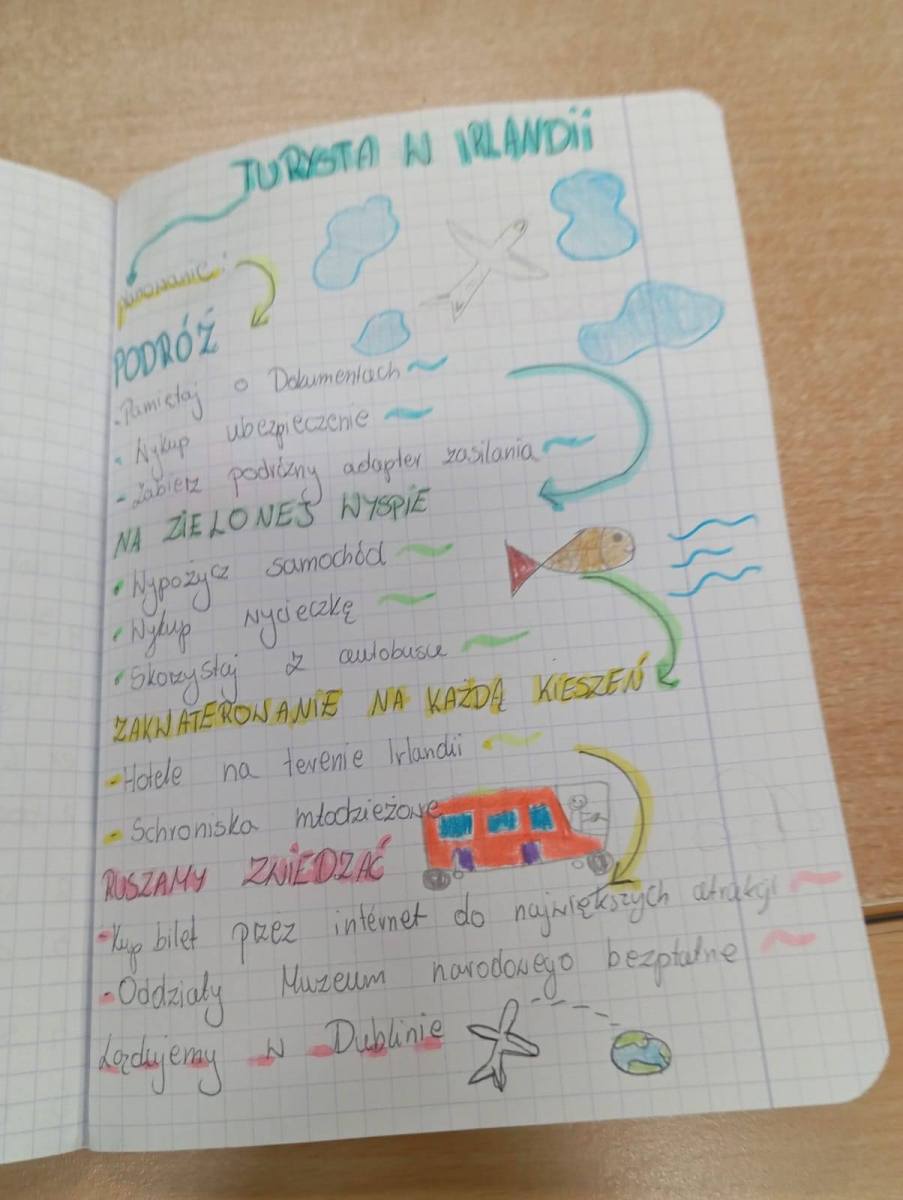 TURYSTA W IRLANDii
PODRÓŻ
-Pamiętaj o Dokumentach
- Wykup ubezpieczenie
- Zabierz podróżny adapter zasilania
NA ZiELONEJ WYSPIE
• Wypożycz samochód
• Wykup wycieczkę
• Skorzystaj z autobusu
ZAKWATEROWANIE NA KAŻDĄ KIESZEŃ
-Hotele na terenie Irlandii
- Schroniska młodzieżowe
RUSZAMY ZWIEDZAĆ
-Kup bilet przez internet do największych atrakcji
-Oddziały Muzeum narodowego bezpłatne
Lądujemy w Dublinie